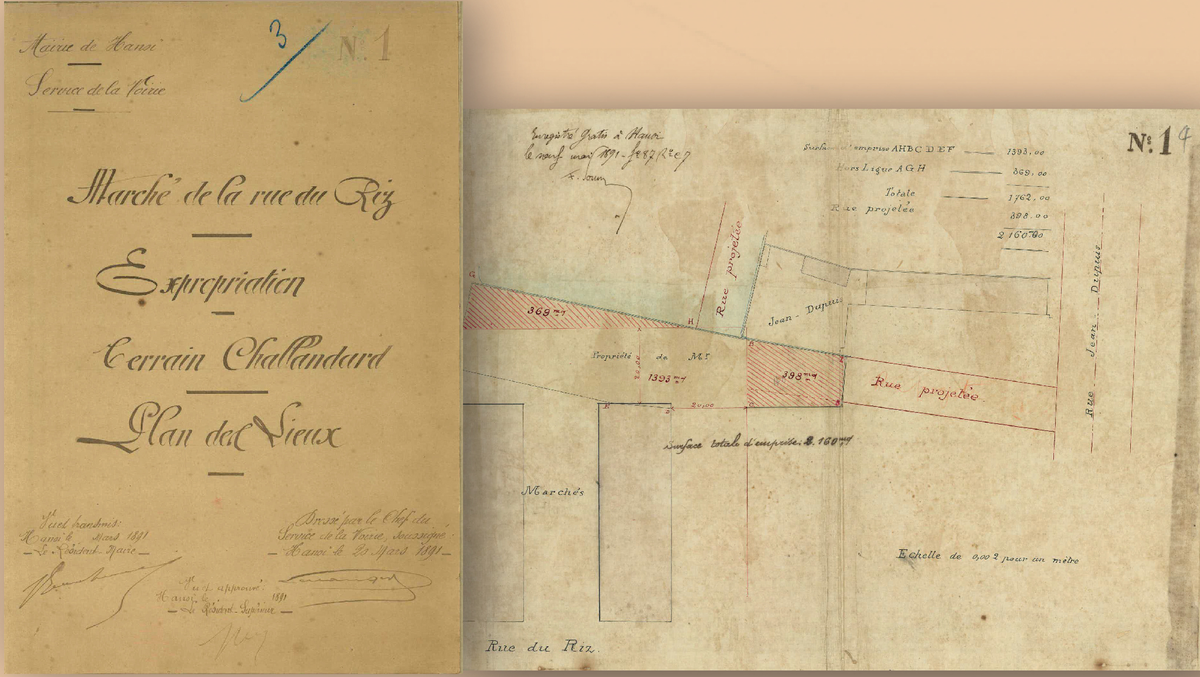 Mairie de Hanoi
Service de la Voirie
3
N. 1
Marché de la rue du Riz
Expropriation
Terrain Challandard
Plan des Lieux
Vu et transmis:
Hanoi le Mars 1891
Le Résident-Maire
Dressé par le Chef du
Service de la Voirie, soussigné
Hanoi le 20 Mars 1891
Vu et approuvé
Hanoi le 1891
Le Résident-Supérieur
Enregistré Gratis à Hanoi
le neuf mai 1891
Surface d'emprise AHBCDEF 1393,00
Hors Ligne AGH 369,00
Totale 1762,00
Rue projetée 398,00
2160,00
No. 1
G
369 m2
H
Rue projetée
Jean-Dupuis
Rue Jean-Dupuis
Propriété de Mr
1393 m2
398 m2
Rue projetée
20,00
Surface totale d'emprise. 2.160 m2
Marchés
Echelle de 0,002 pour un mètre
Rue du Riz.